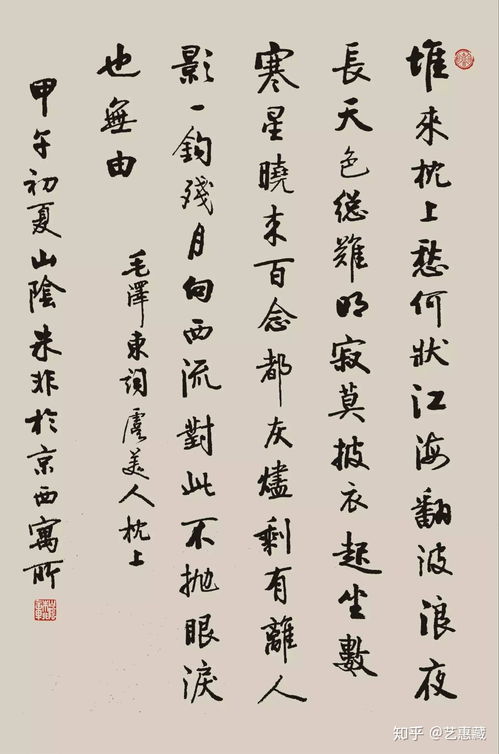 堆來枕上愁何狀江海翻波浪夜
長天色總難明寂莫披衣起坐數
寒星曉來百念都灰燼剩有離人
影一鈎殘月向西流對此不拋眼淚
也無由
毛澤東詞虞美人枕上
甲午初夏山陰朱非於京西寓所
知乎 @艺惠藏